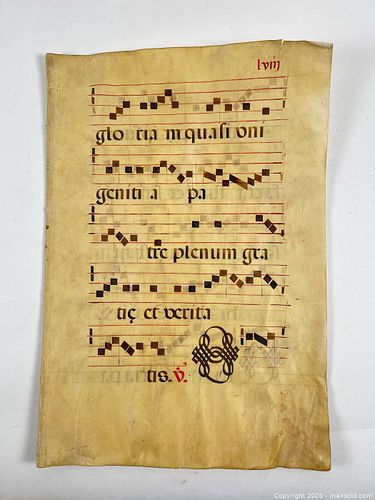 lviij
glo ria m quasi vni
geniti a pa
tre plenum gra
tię et verita
tis. ℣.
© 2026 - maxsold.com